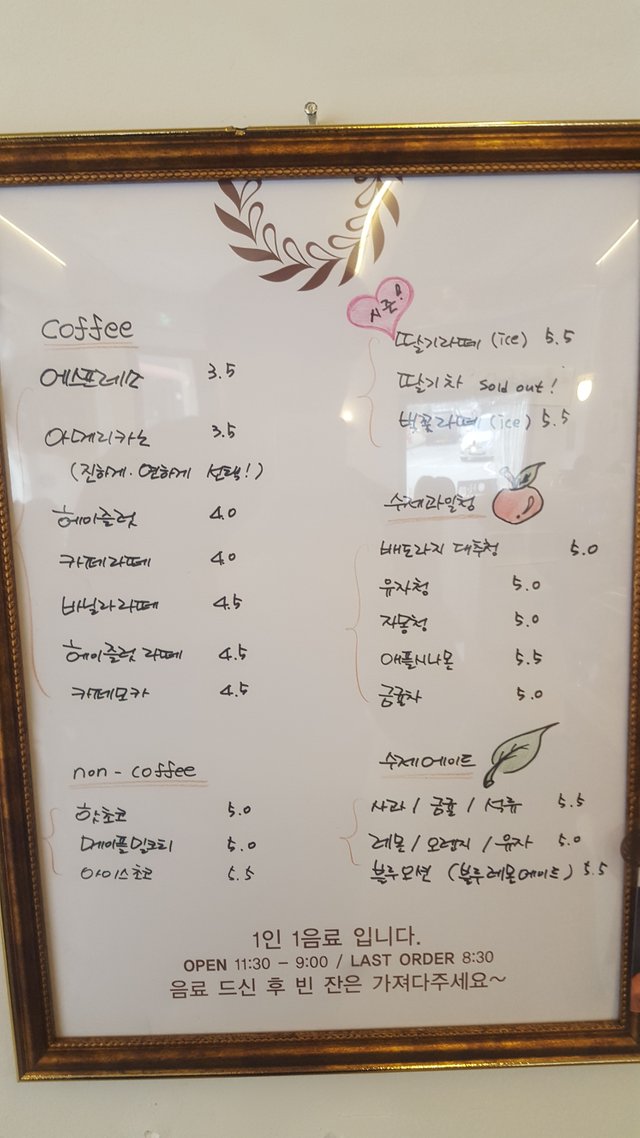 coffee
에스프레소 3.5
아메리카노 3.5
(진하게·연하게 선택!)
헤이즐럿 4.0
카페라떼 4.0
바닐라라떼 4.5
헤이즐럿 라떼 4.5
카페모카 4.5
non - coffee
핫초코 5.0
메이플밀크티 5.0
아이스초코 5.5
시즌!
딸기라떼 (ice) 5.5
딸기차 Sold out!
벚꽃라떼 (ice) 5.5
수제과일청
배도라지 대추청 5.0
유자청 5.0
자몽청 5.0
애플시나몬 5.5
금귤차 5.0
수제에이트
사과 / 금귤 / 석류 5.5
레몬 / 오렌지 / 유자 5.0
블루오션 (블루레몬에이트) 5.5
1인 1음료 입니다.
OPEN 11:30 - 9:00 / LAST ORDER 8:30
음료 드신 후 빈 잔은 가져다주세요~